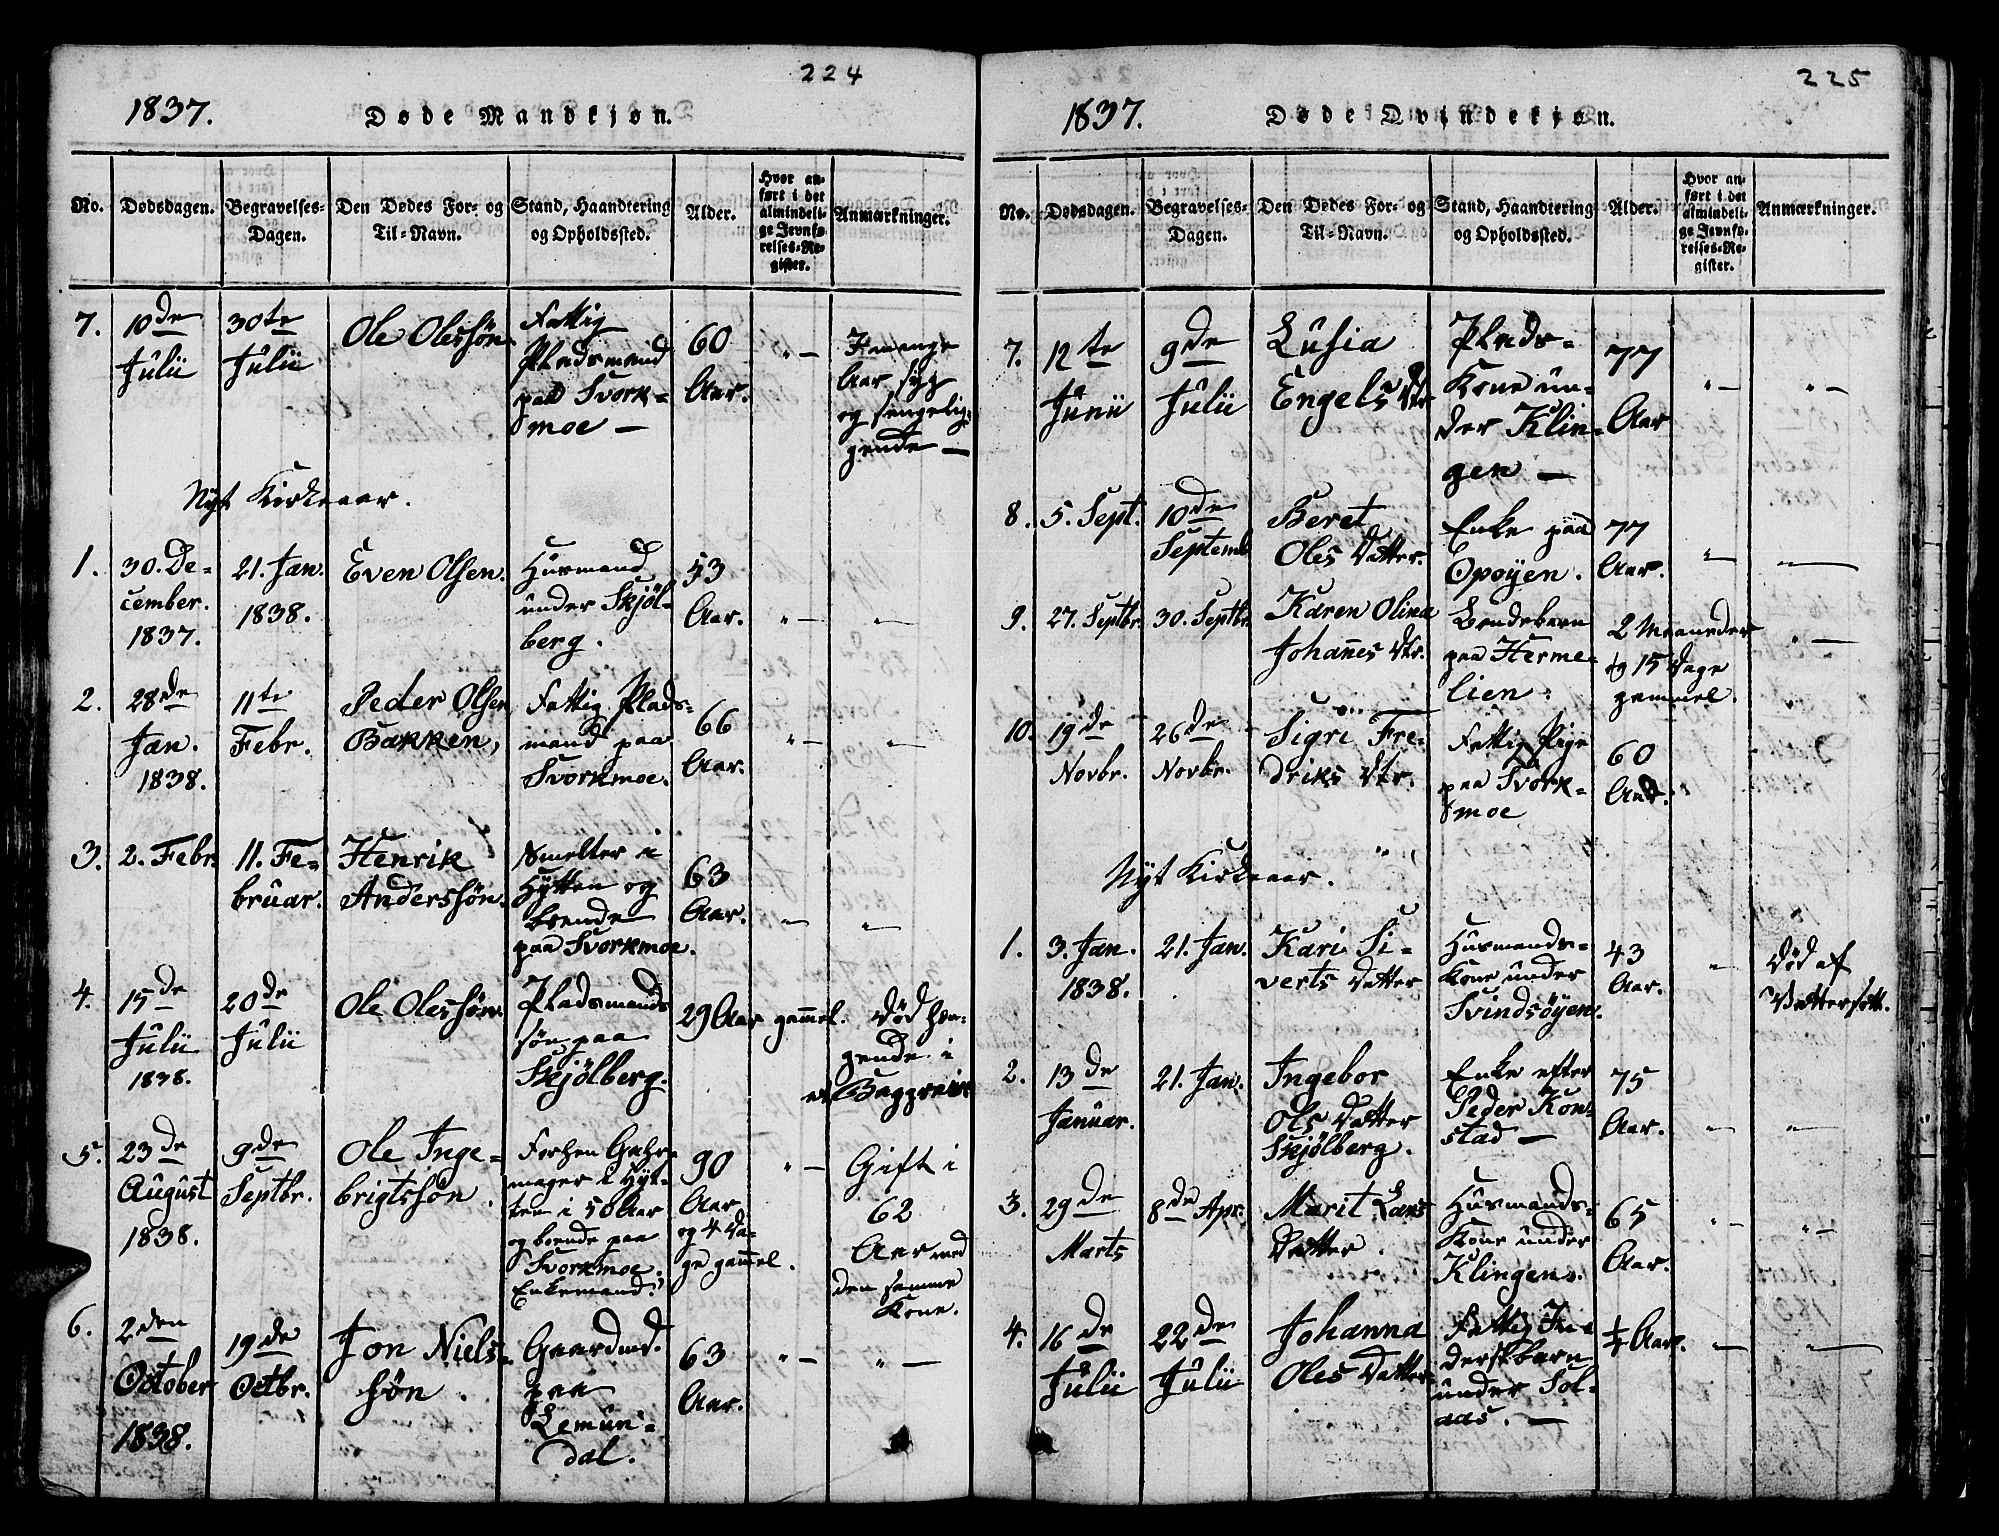 224
1837.
Døde Mandkjøn.
No.
Dødsdagen.
Begravelses-
Dagen.
Den Dødes For- og
Til-Navn.
Stand, Haandtering
og Opholdssted.
Alder.
Hvor an-
ført i det
almindeli-
ge Jevnfø-
relses-Re-
gister.
Anmærkninger.
7.
10de
Julii
30te
Julii
Ole Olessøn
Fattig
Pladsmand
paa Svork-
moe —
60
Aar.
" —
I mange
Aar syg
og sengelig-
gende —
Nyt Kirkeaar.
1.
30. De-
cember.
1837.
21. Jan.
1838.
Even Olsen.
Husmand
under Skjøl-
berg.
53
Aar.
" —
" —
2.
28de
Jan.
1838.
11te
Febr.
Peder Olsen
Bakken,
Fattig Plads-
mand paa
Svorkmoe.
66
Aar.
" —
" —
3.
2. Febr.
11. Fe-
bruar.
Henrik
Anderssøn.
Smelter i
Hytten og
boende
paa Svorkmoe.
63
Aar.
" —
" —
4.
15de
Julii
1838.
20de
Julii
Ole Olessøn
Pladsmands
søn paa
Skjølberg.
29 Aar gammel.
Død hæn-
gende i
Baggreise
5.
23de
August
1838.
9de
Septbr.
Ole Inge-
brigtssøn.
Forhen Gahr-
mager i Hyt-
ten i 50 Aar
og boende paa
Svorkmoe.
Enkemand.
90
Aar
og 4 Da-
ge gammel.
" —
Gift i
62
Aar med
den samme
Kone.
6.
2den
October
1838.
19de
Octbr.
Jon Niels-
søn.
Gaardmd.
paa
Lemun-
dal.
63
Aar.
" —
" —
225
1837.
Døde Qvindekjøn.
No.
Dødsdagen.
Begravelses-
Dagen.
Den Dødes For- og
Til-Navn.
Stand, Haandtering
og Opholdssted.
Alder.
Hvor an-
ført i det
almindeli-
ge Jevnfø-
relses-Re-
gister.
Anmærkninger.
7.
12te
Junii
9de
Julii
Lusia
Engels Dtr
Plads-
Kone un-
der Klin-
gen —
77
Aar
" —
" —
8.
5. Sept.
10de
Septemb
Beret
Oles Datter.
Enke paa
Opøyen.
77
Aar.
" —
—
9.
27. Septbr.
30. Septbr.
Karen Olina
Johannes Dtr.
Bondebarn
paa Herme-
lien.
2 Maaneder
og 15 Dage
gammel.
" —
10.
19de
Novbr.
26de
Novbr.
Sigri Fre-
driks Dtr.
Fattig Pige
paa Svork-
moe
60
Aar.
Nyt Kirkeaar.
1.
3. Jan.
1838.
21. Jan.
Kari Si-
verts Datter
Husmands-
Kone under
Svindsøyen.
43
Aar.
"
Død af
Vattersott.
2.
13de
Januar.
21. Jan.
Ingebor
Ols Datter
Skjølberg.
Enke efter
Peder Kon-
stad —
75
Aar.
" —
" —
3.
29de
Marts
8de Apr.
Marit Lars
Datter.
Husmands-
Kone under
Klingen.
65
Aar.
" —
" —
4.
16de
Julii
22de
Julii
Johanna
Oles Datter
Fattig In-
derstbarn
under Sol-
aas. —
½ Aar.
" —
" —